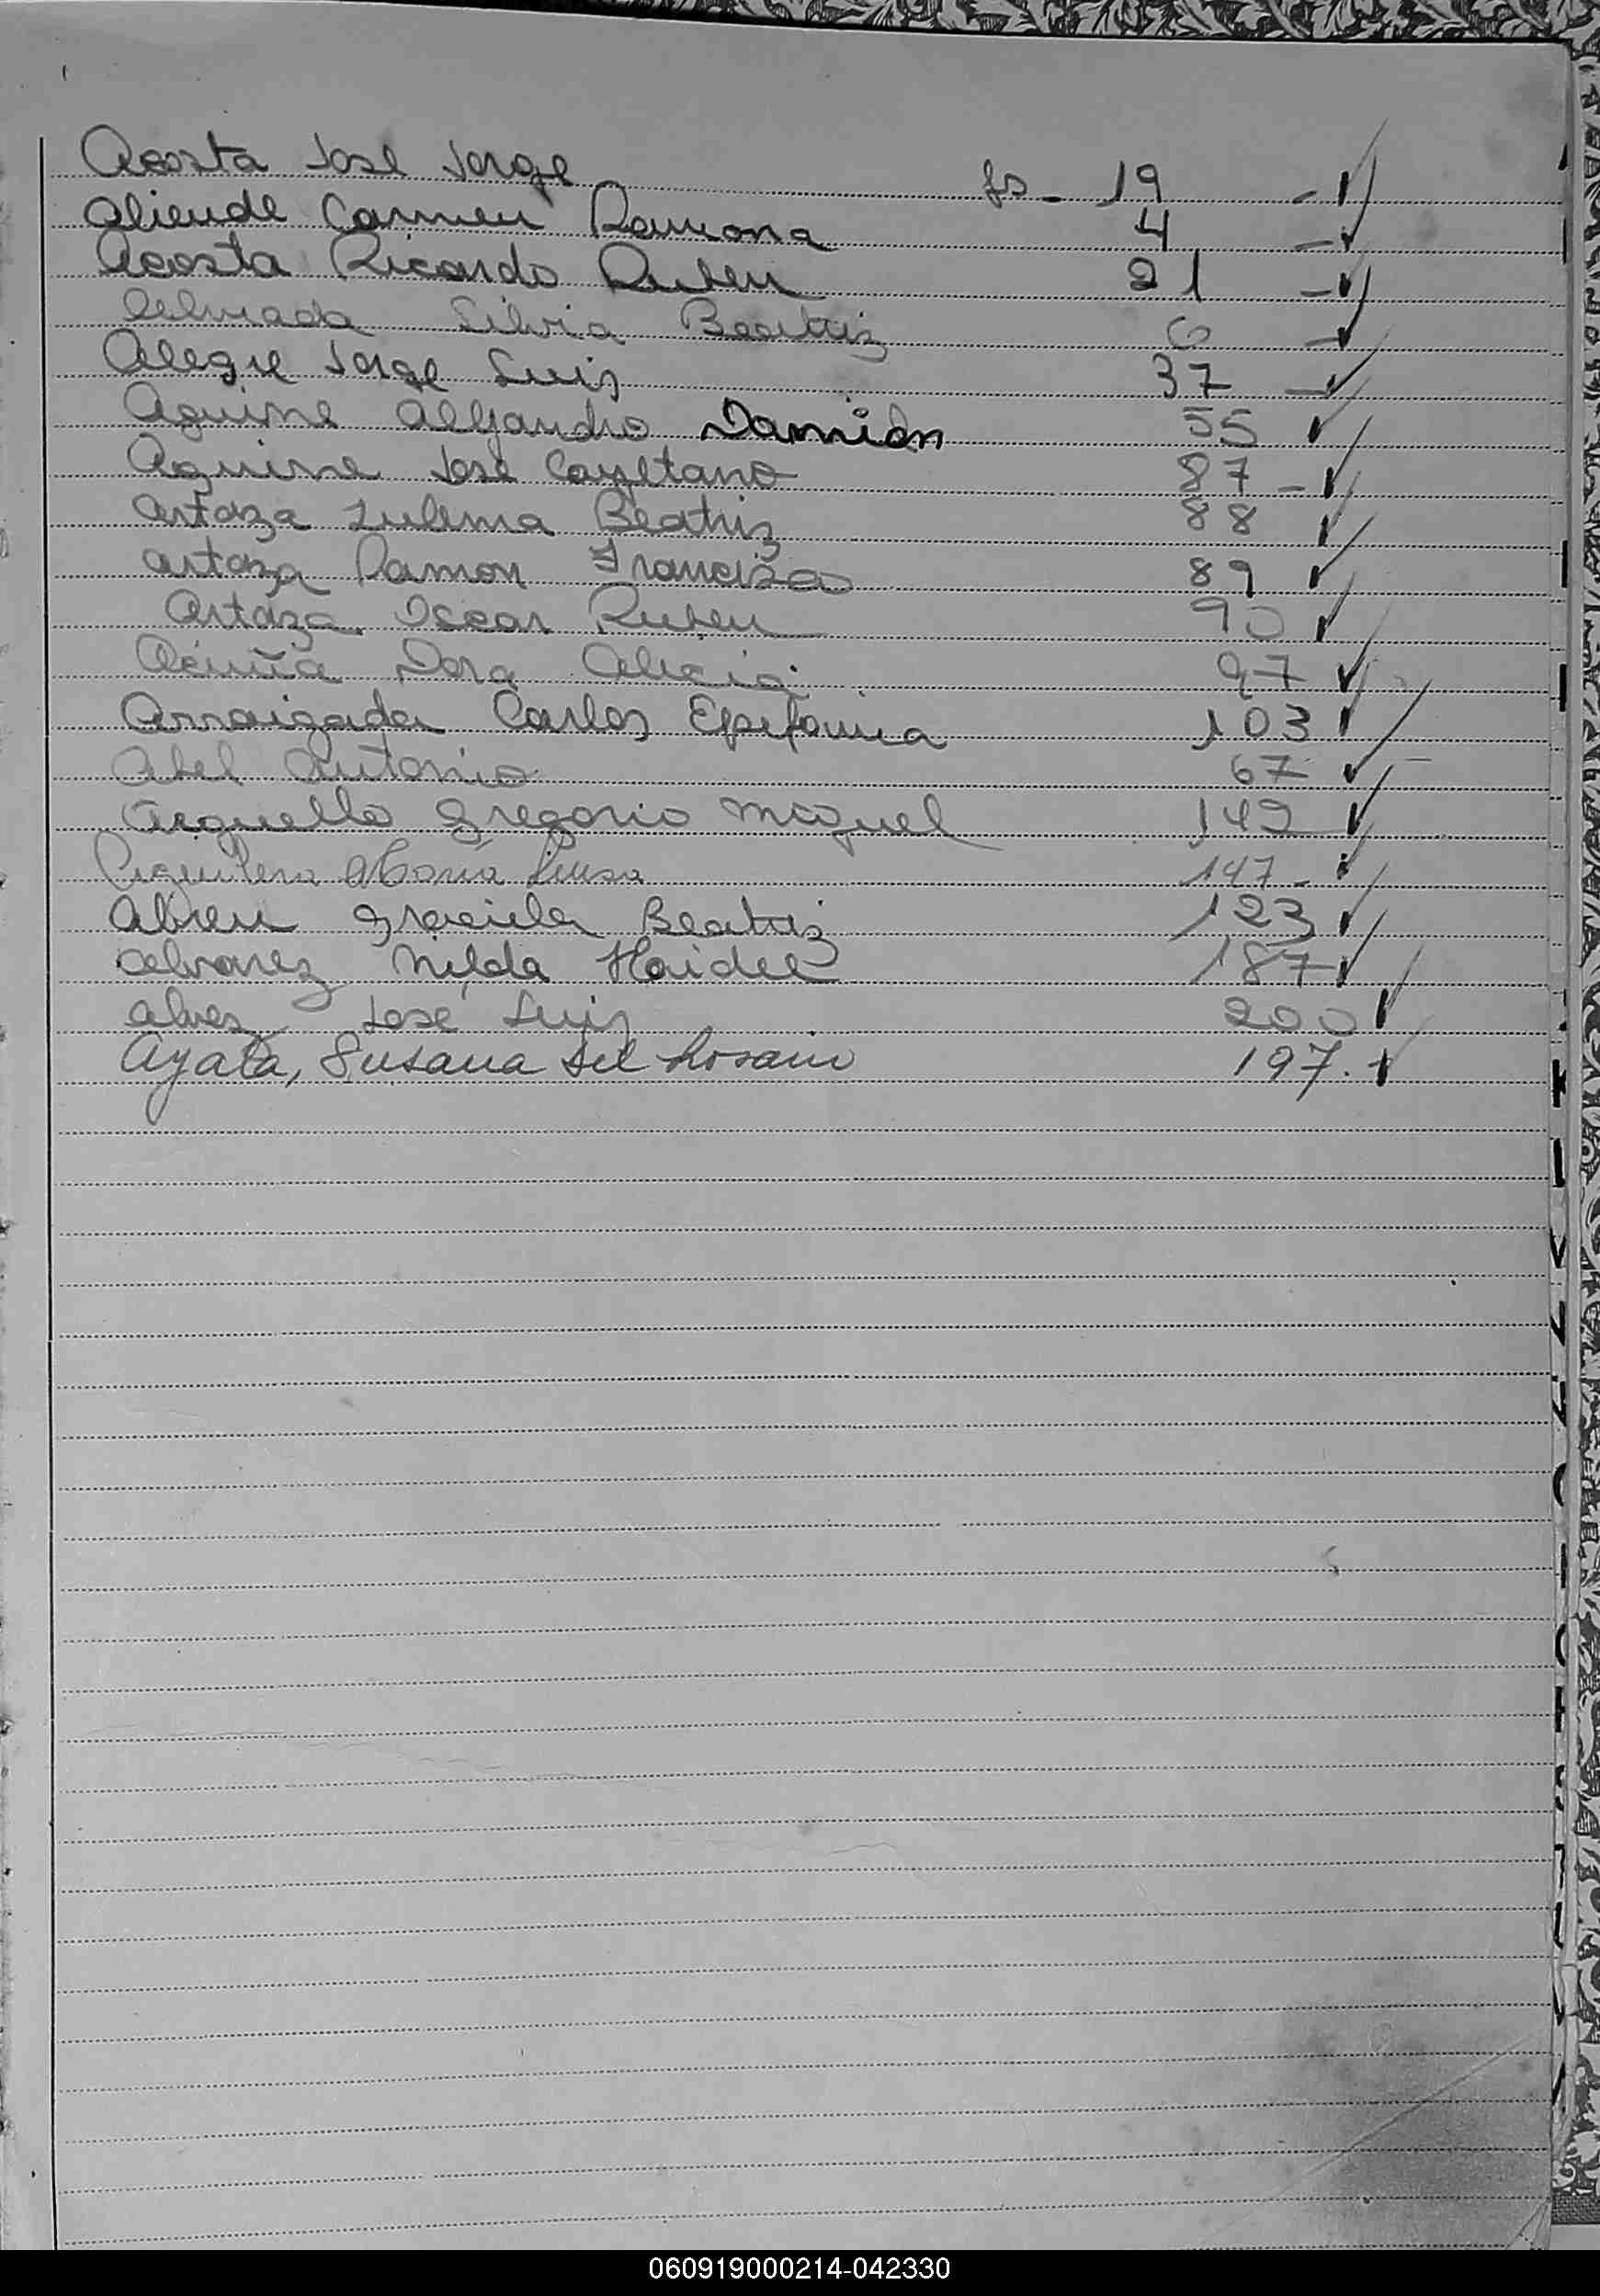 Acosta José Jorge fs - 19 - ✓
Aliende Carmen Ramona 4 - ✓
Acosta Ricardo Ruben 21 - ✓
Silvia Beatriz 6 - ✓
Alegre Jorge Luis 37 - ✓
Aguirre Alejandro Damián 55 ✓
Aguirre José Cayetano 87 - ✓
Artaza Zulema Beatriz 88 ✓
Artaza Ramon Francisco 89 ✓
Artaza Oscar Ruben 90 ✓
Acuña Dora Alicia 97 ✓
Arraigada Carlos Epifania 103 ✓
Abel Antonio 67 ✓
Arguello Gregorio Miguel 142 ✓
Aguilera María Luisa 147 - ✓
Abreu Graciela Beatriz 123 ✓
Alvarez Nilda Haidee 187 ✓
Alvez José Luis 200 ✓
Ayala, Susana del Rosario 197. ✓
060919000214-042330